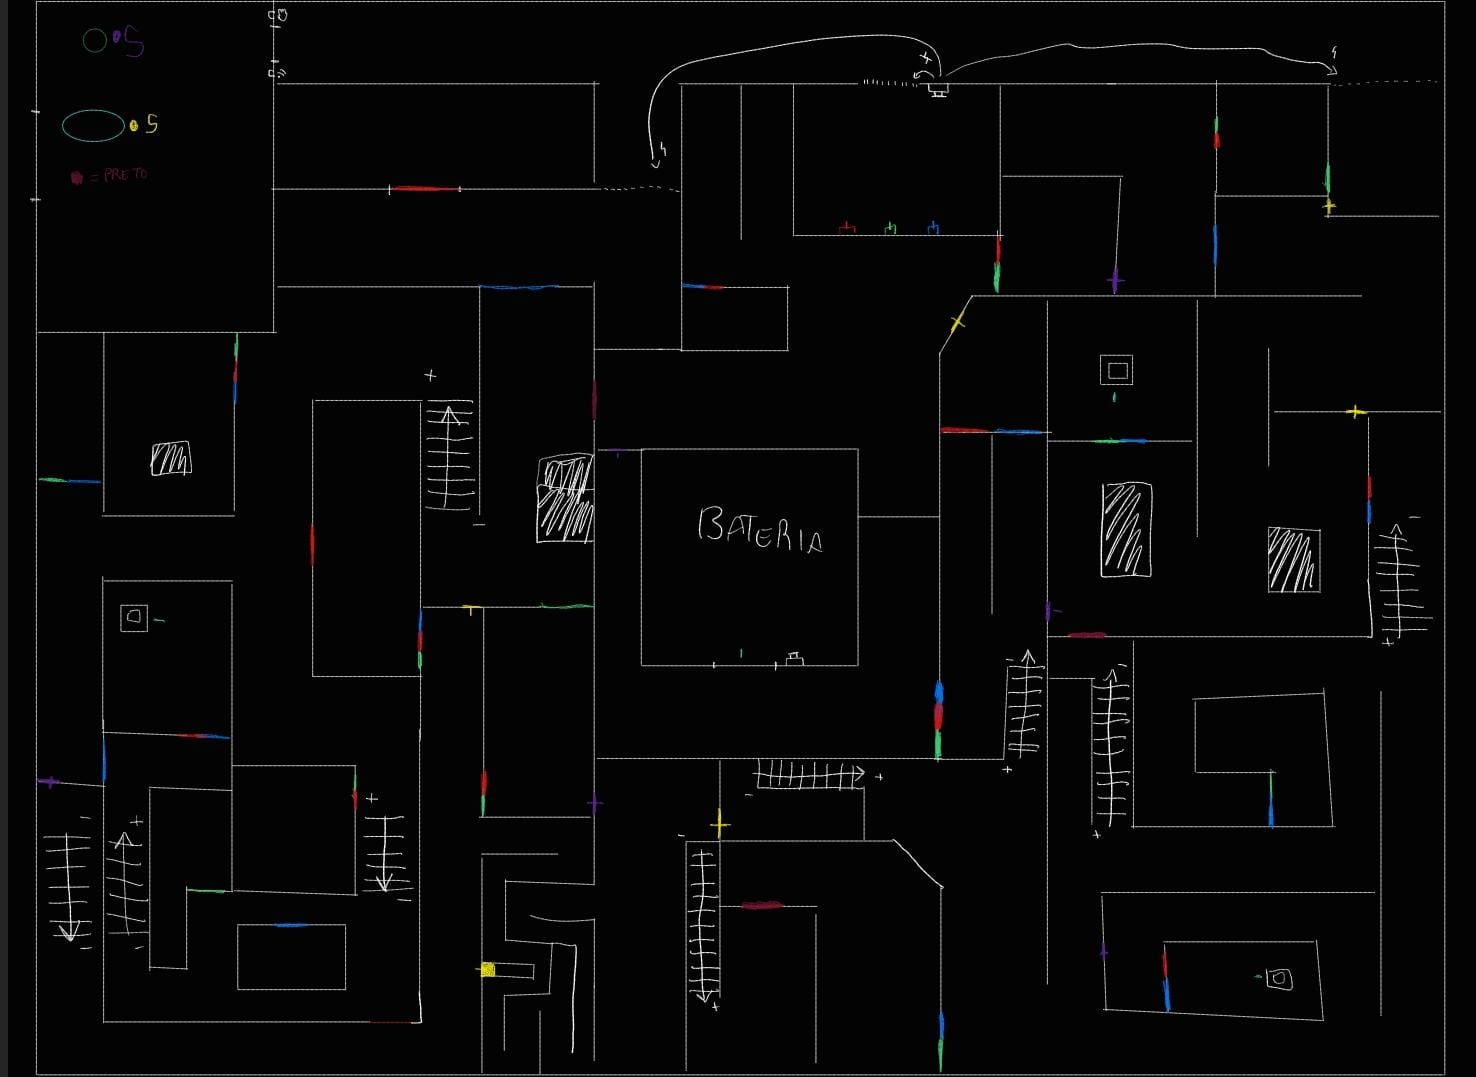 S
S
= PRETO
BATERIA